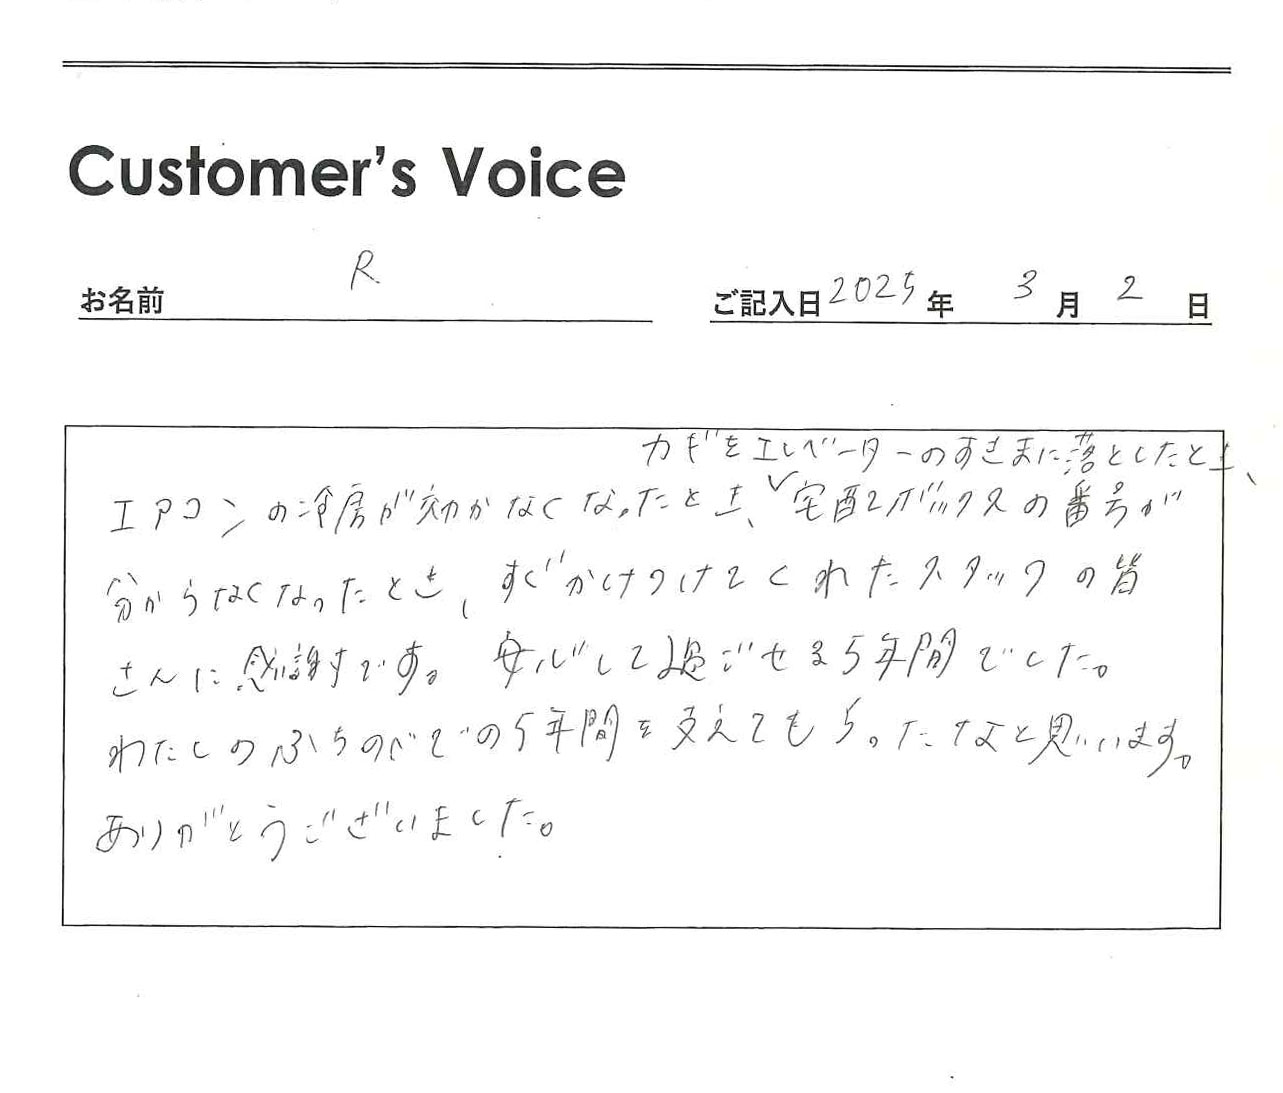 Customer's Voice
お名前 R
ご記入日 2025年 3月 2日
カギをエレベーターのすきまに落としたとき、
エアコンの冷房が効かなくなったとき、宅配ボックスの番号が
分からなくなったとき、すぐかけつけてくれたスタッフの皆
さんに感謝です。安心して過ごせる5年間でした。
わたしのふちのべでの5年間を支えてもらったなと思います。
ありがとうございました。